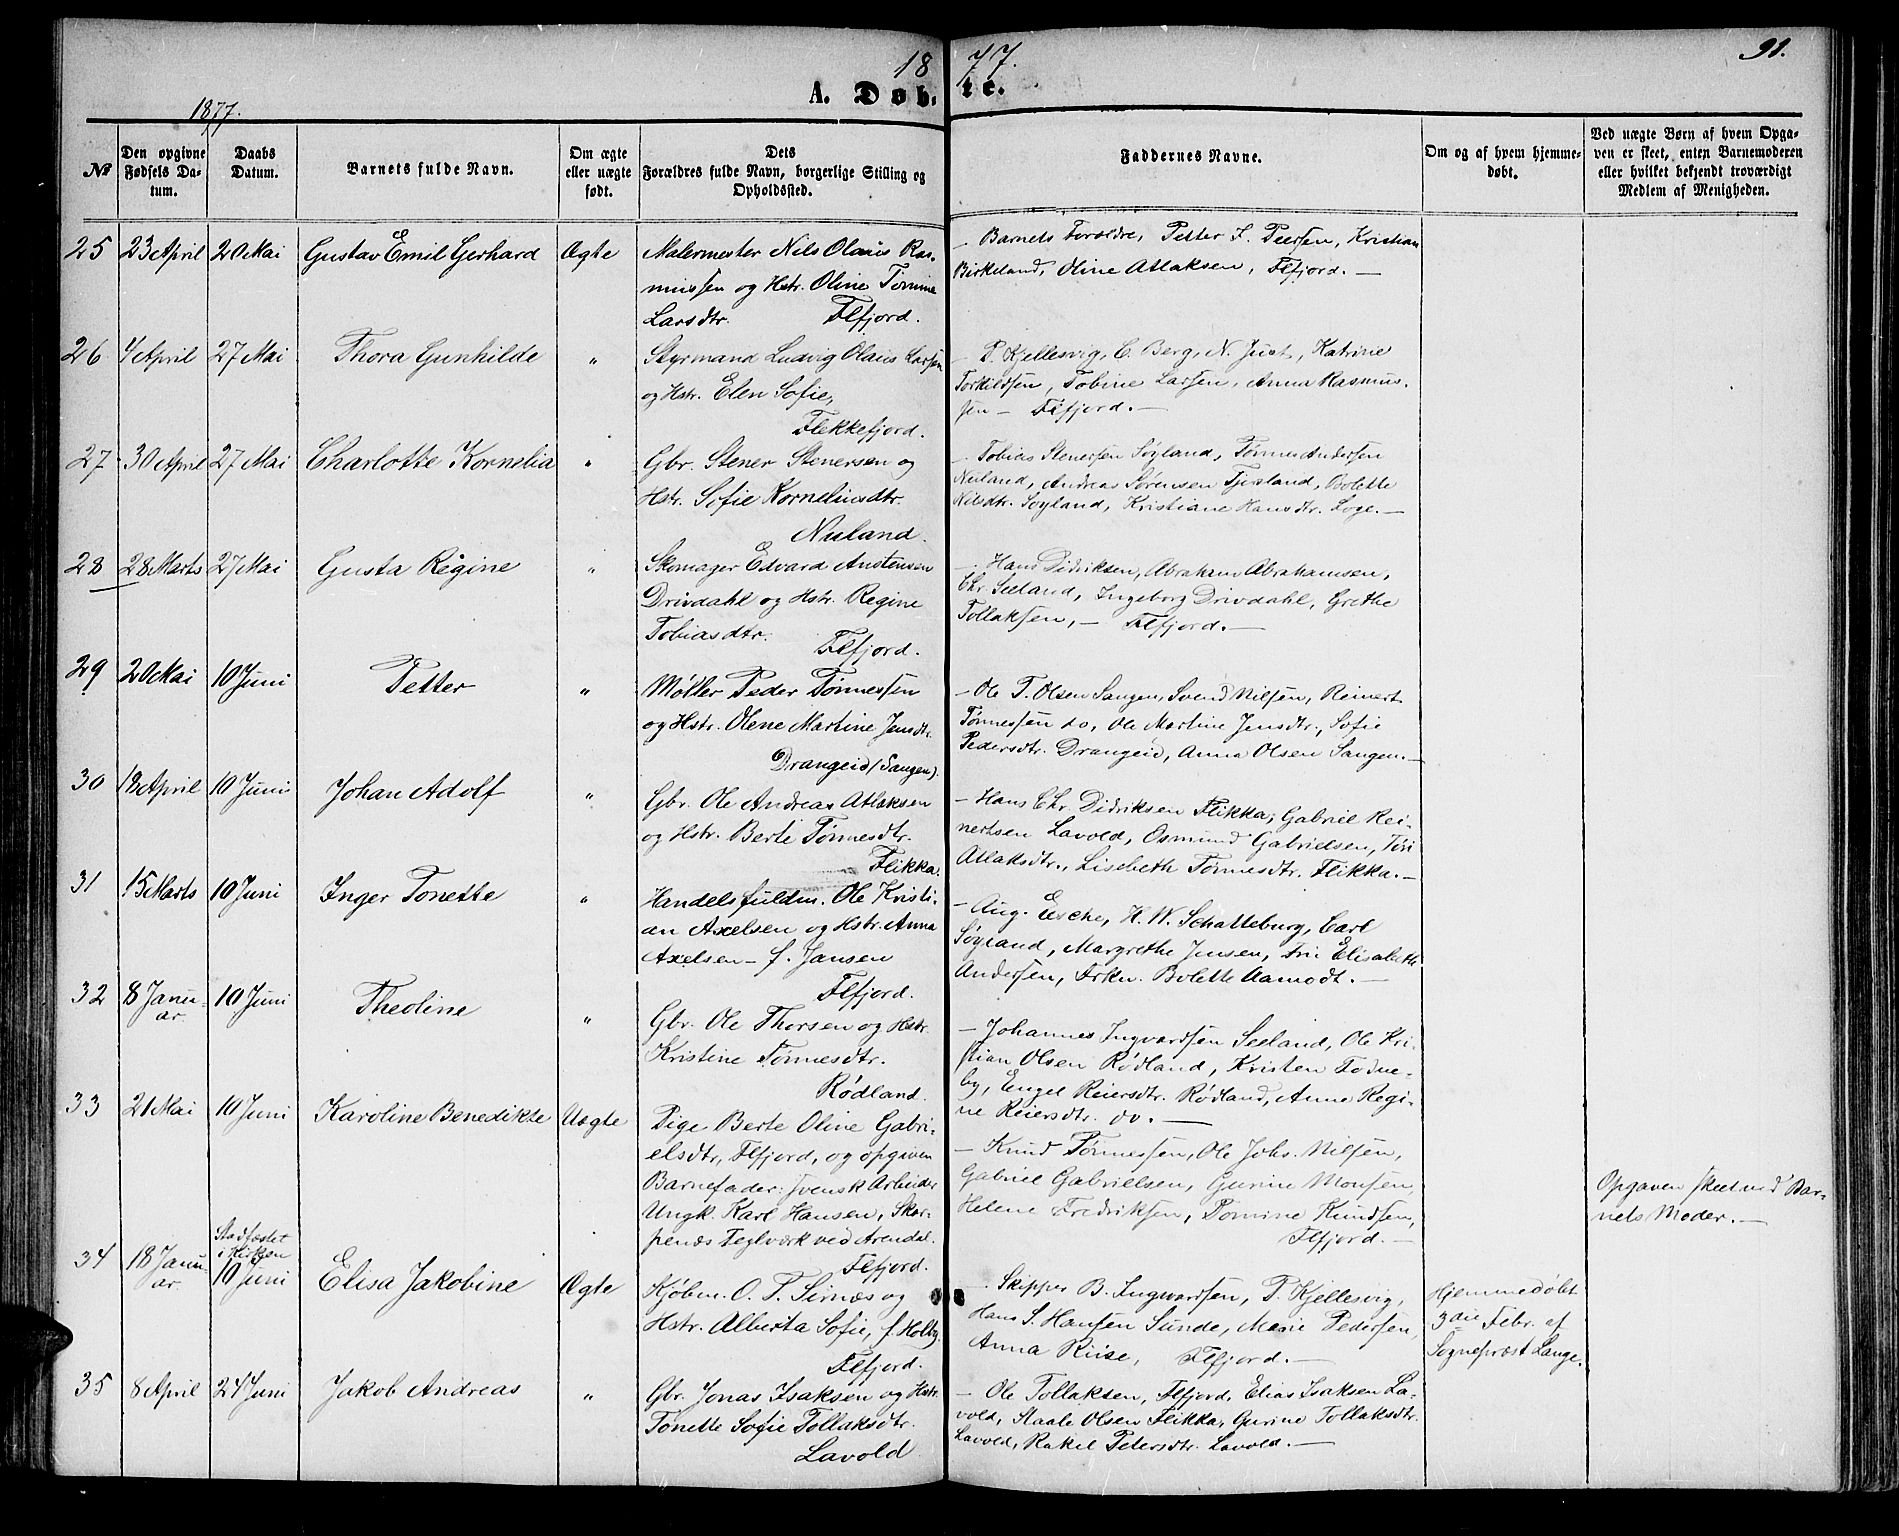 18 77.
91.
A. Døb- te.
1877.
№
Den opgivne Fødsels Datum.
Daabs Datum.
Barnets fulde Navn.
Om ægte eller uægte født.
Dets Forældres fulde Navn, borgerlige Stilling og Opholdssted.
Faddernes Navne.
Om og af hvem hjemmedøbt.
Ved uægte Børn af hvem Opgaven er skeet, enten Barnemoderen eller hvilket bekjendt troværdigt Medlem af Menigheden.
25 23 April 20 Mai Gustav Emil Gerhard Ægte
Malermester Nils Olaus Ras-
mussen og Hstr. Oline Tomine
Larsdtr. Flfjord.
— Barnets Forældre, Petter J. Peersen, Kristian
Birkeland, Oline Atlaksen, Flfjord. —
26 4 April 27 Mai Thora Gunhilde "
Styrmand Ludvig Olaus Larsen
og Hstr. Elen Sofie,
Flekkefjord.
— P. Kjellesvig, C. Berg, N. Just, Katrine
Torkildsen, Tobine Larsen, Anna Rasmus-
sen — Flfjord. —
27 30 April 27 Mai Charlotte Kornelia "
Gbr. Stener Stenersen og
Hstr. Sofie Korneliusdtr.
Nuland.
— Tobias Stenersen Søyland, Tønnes Andersen
Nuland, Andreas Sørensen Tjersland, Bolette
Nilsdtr. Søyland, Kristiane Hansdtr. Loge. —
28 28 Marts 27 Mai Gusta Regine "
Skomager Edvard Anstensen
Drivdahl og Hstr. Regine
Tobiasdtr. Flfjord.
— Hans Didriksen, Abraham Abrahamsen,
Chr. Seeland, Ingeborg Drivdahl, Grethe
Tollaksen, — Flfjord. —
29 20 Mai 10 Juni Petter "
Møller Peder Tønnessen
og Hstr. Olene Martine Jensdtr.
Drangeid (Sangen).
— Ole T. Olsen Sangen, Svend Nilsen, Reinert
Tønnessen do, Ole Martine Jensdtr., Sofie
Pedersdtr. Drangeid, Anna Olsen Sangen. —
30 18 April 10 Juni Johan Adolf "
Gbr. Ole Andreas Atlaksen
og Hstr. Berte Tønnesdtr.
Flikka.
— Hans Chr. Didriksen Flikka, Gabriel Rei-
nertsen Lavold, Osmund Gabrielsen, Tori
Atlaksdtr., Lisebeth Tønnesdtr. Flikka. —
31 15 Marts 10 Juni Inger Tonette "
Handelsfuldm. Ole Kristi-
an Axelsen og Hstr. Anna
Axelsen — f. Jansen
Flfjord.
— Aug. Esche, H. W. Schatteburg, Carl
Søyland, Margrethe Jensen, Fru Elisabeth
Andersen, Frkn. Bolette Aamodt. —
32 8 Janu- 10 Juni Theoline "
ar
Gbr. Ole Thorsen og Hstr.
Kristine Tønnesdtr.
Rødland.
— Johannes Ingvardsen Seeland, Ole Kri-
stian Olsen Rødland, Kristen Fodne-
by, Engel Reiersdtr. Rødland, Anne Regi-
ne Reiersdtr. do. —
33 21 Mai 10 Juni Karoline Benedikte Uægte
Pige Berte Oline Gabri-
elsdtr, Flfjord, og opgiven
Barnefader: svensk Arbeider
Ungk. Karl Hansen, Skar-
penæs Teglværk ved Arendal.
Flfjord.
— Knud Tønnessen, Ole Johs. Nilsen,
Gabriel Gabrielsen, Gurine Monsen,
Helene Fredriksen, Tomine Knudsen,
Flfjord. —
Opgaven skeet ved Bar-
nets Moder. —
Stadfæstet
i Kirken
34 18 Janu- 10 Juni Elisa Jakobine Ægte
ar
Kjøbm. O. P. Sirnæs og
Hstr. Alberta Sofie, f. Holby.
Flfjord.
— Skipper B. Ingwardsen, P. Kjellesvig,
Hans S. Hansen Sunde, Marie Pedersen,
Anna Riise, Flfjord. —
Hjemmedøbt
3die Febr. af
Sognepræst Lange.
35 8 April 24 Juni Jakob Andreas "
Gbr. Jonas Isaksen og Hstr.
Tonette Sofie Tollaksdtr.
Lavold
— Ole Tollaksen, Flfjord, Elias Isaksen La-
vold, Staale Olsen Flikka, Gurine Tollaksdtr.
Lavold, Rakel Petersdtr. Lavold. —